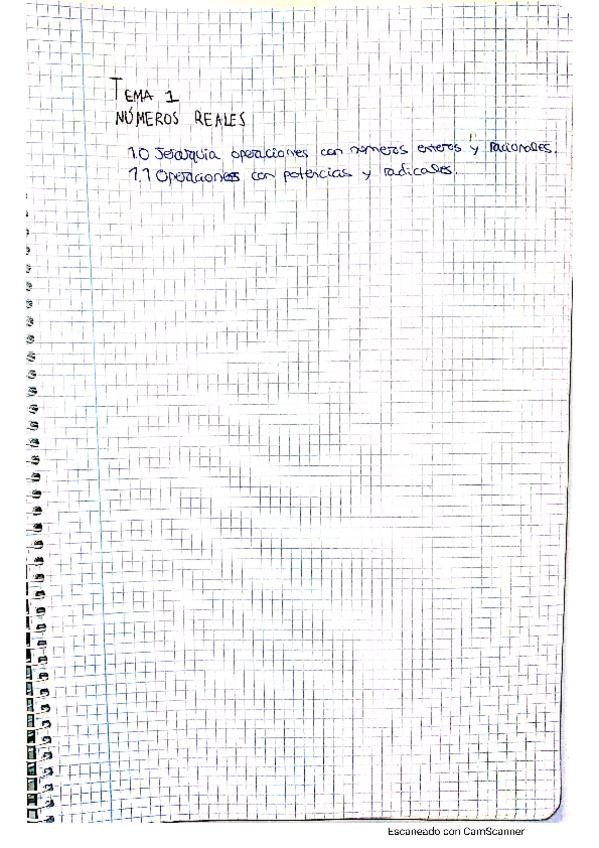 TEMA 1
NÚMEROS REALES
1.0 Jerarquía operaciones con números enteros y racionales.
1.1 Operaciones con potencias y radicales.
Escaneado con CamScanner